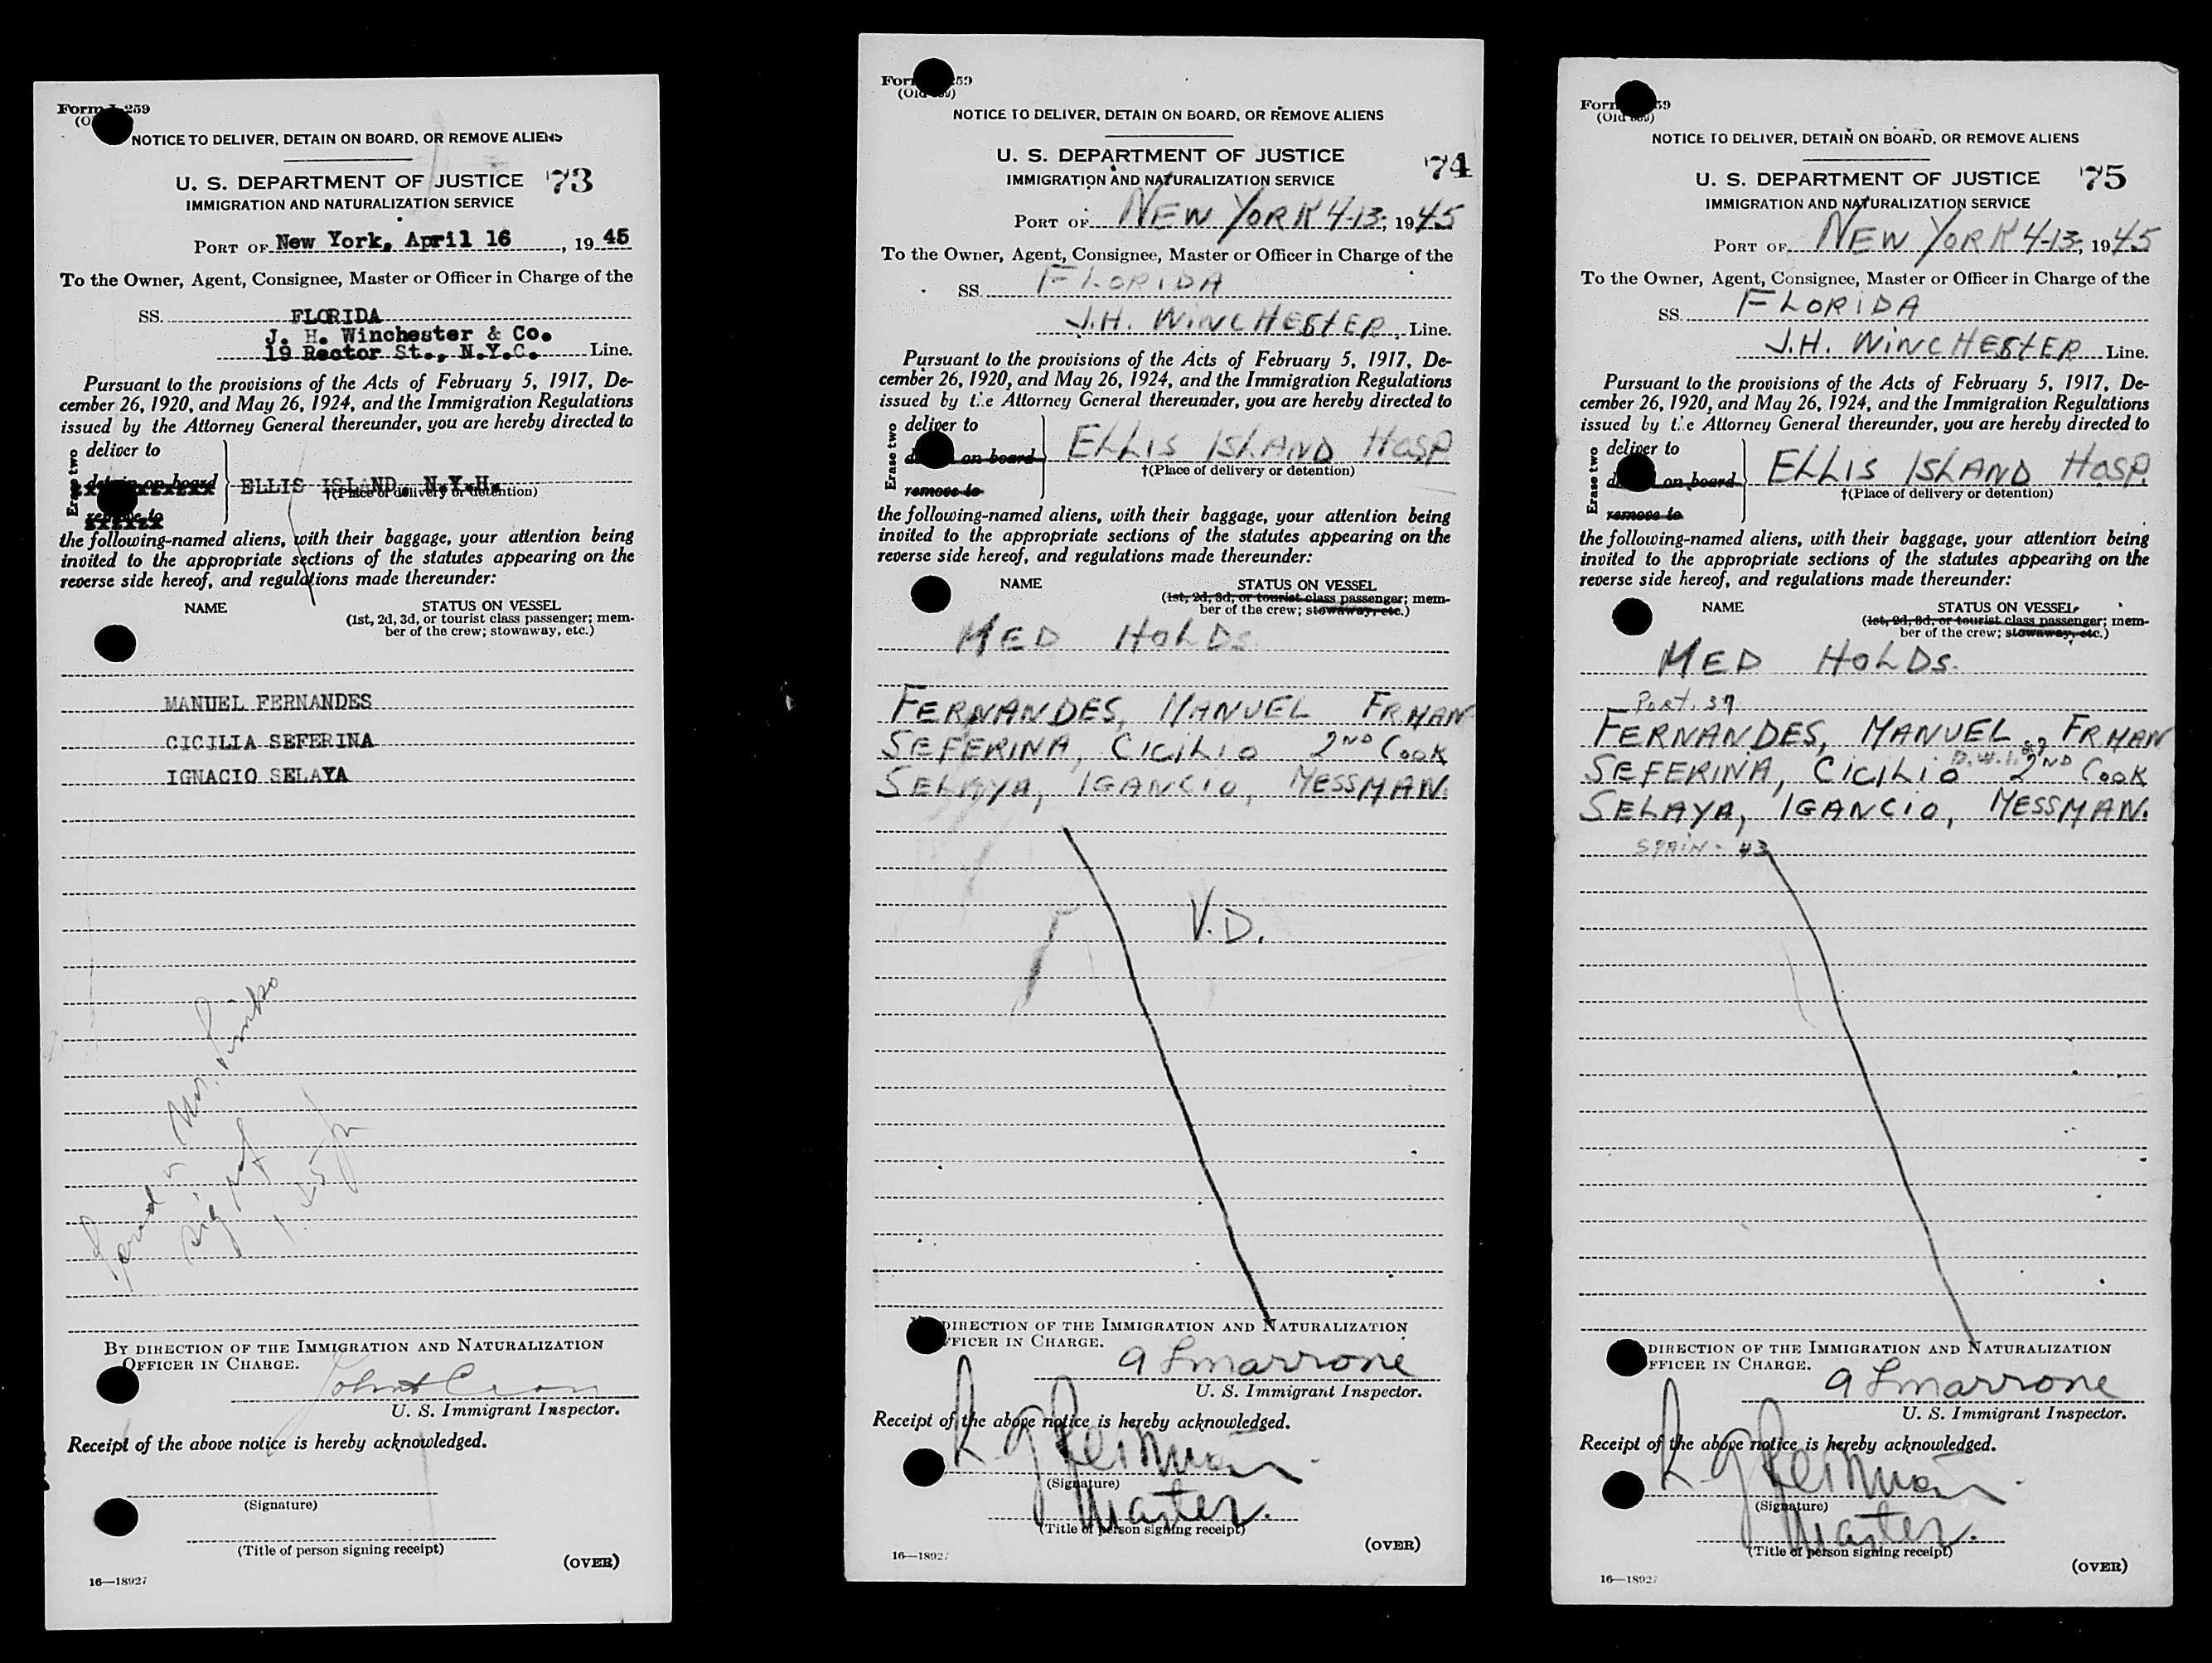 Form I-259
(O
NOTICE TO DELIVER, DETAIN ON BOARD, OR REMOVE ALIENS
U. S. DEPARTMENT OF JUSTICE 73
IMMIGRATION AND NATURALIZATION SERVICE
PORT OF New York, April 16, 19 45
To the Owner, Agent, Consignee, Master or Officer in Charge of the
SS. FLORIDA
J. H. Winchester & Co.
19 Rector St., N.Y.C. Line.
Pursuant to the provisions of the Acts of February 5, 1917, De-
cember 26, 1920, and May 26, 1924, and the Immigration Regulations
issued by the Attorney General thereunder, you are hereby directed to
Erase two
deliver to
detain on board
remove to
ELLIS ISLAND, N.Y.H.
†(Place of delivery or detention)
the following-named aliens, with their baggage, your attention being
invited to the appropriate sections of the statutes appearing on the
reverse side hereof, and regulations made thereunder:
NAME STATUS ON VESSEL
(1st, 2d, 3d, or tourist class passenger; mem-
ber of the crew; stowaway, etc.)
MANUEL FERNANDES
CICILIA SEFERINA
IGNACIO SELAYA
Mr.
BY DIRECTION OF THE IMMIGRATION AND NATURALIZATION
OFFICER IN CHARGE.
U. S. Immigrant Inspector.
Receipt of the above notice is hereby acknowledged.
(Signature)
(Title of person signing receipt)
(OVER)
16—18927
Form 259
(Old
NOTICE TO DELIVER, DETAIN ON BOARD, OR REMOVE ALIENS
U. S. DEPARTMENT OF JUSTICE 74
IMMIGRATION AND NATURALIZATION SERVICE
PORT OF NEW YORK 4-13-, 1945
To the Owner, Agent, Consignee, Master or Officer in Charge of the
SS. FLORIDA
J.H. WINCHESTER Line.
Pursuant to the provisions of the Acts of February 5, 1917, De-
cember 26, 1920, and May 26, 1924, and the Immigration Regulations
issued by the Attorney General thereunder, you are hereby directed to
Erase two
deliver to
on board
remove to
ELLIS ISLAND HOSP
†(Place of delivery or detention)
the following-named aliens, with their baggage, your attention being
invited to the appropriate sections of the statutes appearing on the
reverse side hereof, and regulations made thereunder:
NAME STATUS ON VESSEL
(1st, 2d, 3d, or tourist class passenger; mem-
ber of the crew; stowaway, etc.)
MED HOLDS.
FERNANDES, MANUEL FRMAN
SEFERINA, CICILIO 2ND COOK
SELAYA, IGANCIO, MESSMAN.
V.D.
DIRECTION OF THE IMMIGRATION AND NATURALIZATION
OFFICER IN CHARGE.
A Smarrone
U. S. Immigrant Inspector.
Receipt of the above notice is hereby acknowledged.
(Signature)
Master.
(Title of person signing receipt)
(OVER)
16—18927
Form 59
(Old
NOTICE TO DELIVER, DETAIN ON BOARD, OR REMOVE ALIENS
U. S. DEPARTMENT OF JUSTICE 75
IMMIGRATION AND NATURALIZATION SERVICE
PORT OF NEW YORK 4-13-, 1945
To the Owner, Agent, Consignee, Master or Officer in Charge of the
SS. FLORIDA
J.H. WINCHESTER Line.
Pursuant to the provisions of the Acts of February 5, 1917, De-
cember 26, 1920, and May 26, 1924, and the Immigration Regulations
issued by the Attorney General thereunder, you are hereby directed to
Erase two
deliver to
on board
remove to
ELLIS ISLAND HOSP.
†(Place of delivery or detention)
the following-named aliens, with their baggage, your attention being
invited to the appropriate sections of the statutes appearing on the
reverse side hereof, and regulations made thereunder:
NAME STATUS ON VESSEL
(1st, 2d, 3d, or tourist class passenger; mem-
ber of the crew; stowaway, etc.)
MED HOLDS.
Port. 39
FERNANDES, MANUEL FRMAN
D.W.I.
SEFERINA, CICILIO 2ND COOK
SELAYA, IGANCIO, MESSMAN.
SPAIN - 43
DIRECTION OF THE IMMIGRATION AND NATURALIZATION
OFFICER IN CHARGE.
A Smarrone
U. S. Immigrant Inspector.
Receipt of the above notice is hereby acknowledged.
(Signature)
Master.
(Title of person signing receipt)
(OVER)
16—18927